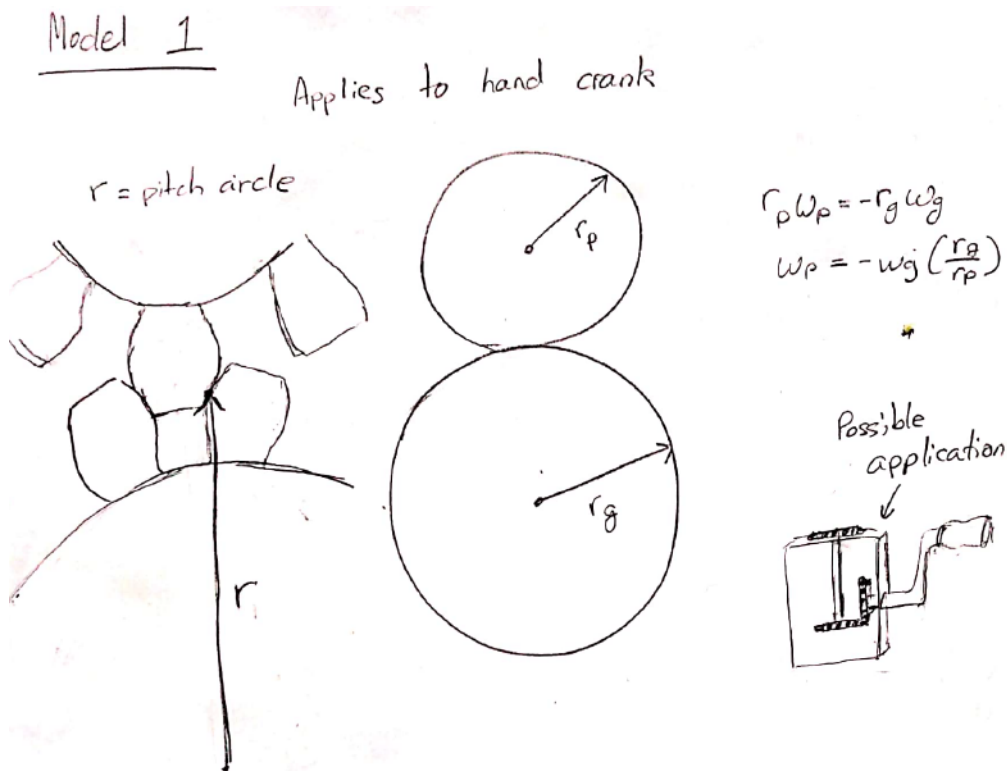 Model 1
Applies to hand crank
r = pitch circle
r
r_p
r_g
r_p ω_p = -r_g ω_g
ω_p = -ω_g (r_g/r_p)
Possible
application